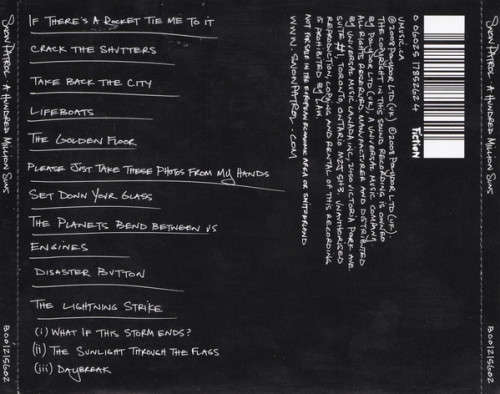 If There's A Rocket Tie Me To It
Crack The Shutters
Take Back The City
Lifeboats
The Golden Floor
Please Just Take These Photos From My Hands
Set Down Your Glass
The Planets Bend Between Us
Engines
Disaster Button
The Lightning Strike
(i) What If This Storm Ends?
(ii) The Sunlight Through The Flags
(iii) Daybreak
0 06025 17852624
Fiction
UMUSIC.CA
℗2008 Polydor Ltd (UK). ©2008 Polydor Ltd (UK).
The copyright in this sound recording is owned
by Polydor Ltd (UK). A Universal Music Company.
All rights reserved. Manufactured and distributed
by Universal Music Canada Inc., 2450 Victoria Park Ave
Suite #1, Toronto, Ontario M2J 5H3. Unauthorised
reproduction, copying and rental of this recording
is prohibited by law.
Not for sale in the European Economic Area or Switzerland
www.snowpatrol.com
Snow Patrol A Hundred Million Suns
B001215602
Snow Patrol A Hundred Million Suns
B001215602